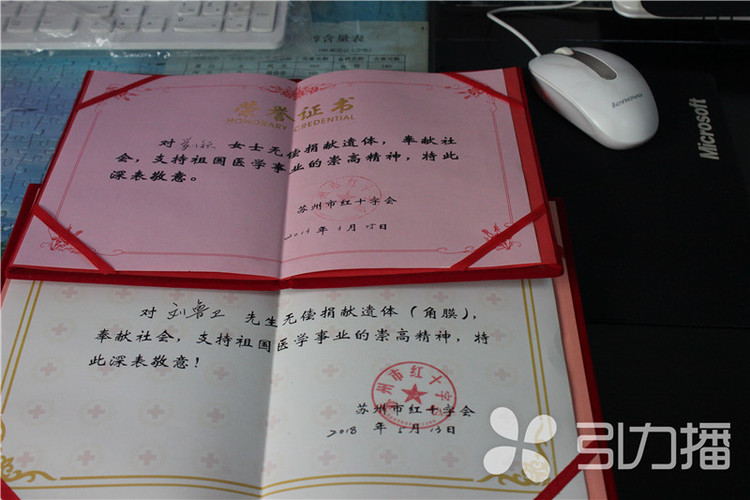 荣誉证书
HONORARY CREDENTIAL
对 女士无偿捐献遗体，奉献社
会，支持祖国医学事业的崇高精神，特此
深表敬意。
苏州市红十字会
月 日
对 刘鲁卫 先生无偿捐献遗体（角膜），
奉献社会，支持祖国医学事业的崇高精神，特
此深表敬意！
苏州市红十字会
苏州市红十字会
2018 年 5 月 13 日
lenovo
Microsoft
引力播